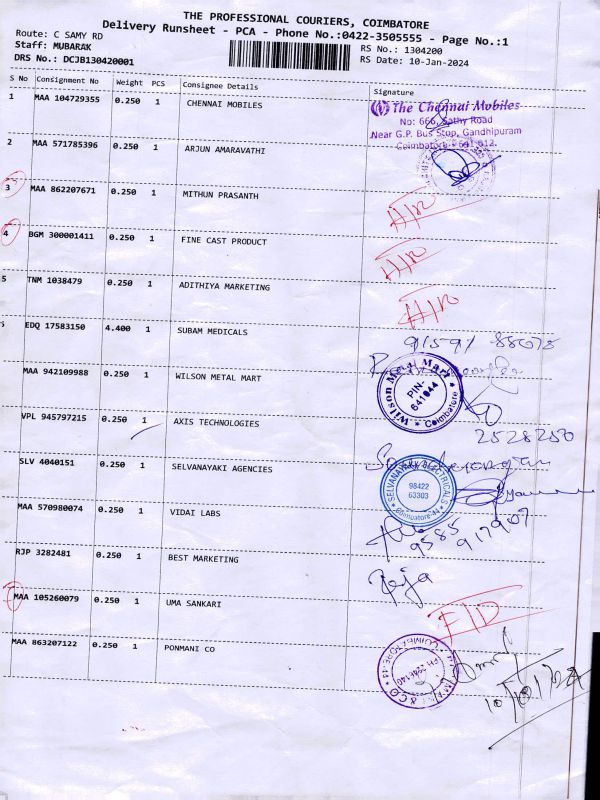 THE PROFESSIONAL COURIERS, COIMBATORE
Delivery Runsheet - PCA - Phone No.:0422-3505555 - Page No.:1
Route: C SAMY RD
Staff: MUBARAK
RS No.: 1304200
DRS No.: DCJB130420001
RS Date: 10-Jan-2024
S No Consignment No Weight PCS Consignee Details Signature
1 MAA 104729355 0.250 1 CHENNAI MOBILES
The Chennai Mobiles
No: 666, Sathy Road
Near G.P. Bus Stop, Gandhipuram
Coimbatore - 641 012.
2 MAA 571785396 0.250 1 ARJUN AMARAVATHI
3 MAA 862207671 0.250 1 MITHUN PRASANTH
4 BGM 300001411 0.250 1 FINE CAST PRODUCT
5 TNM 1038479 0.250 1 ADITHIYA MARKETING
EDQ 17583150 4.400 1 SUBAM MEDICALS
91591 88078
MAA 942109988 0.250 1 WILSON METAL MART
Wilson Metal Mart
PIN-
641044
Coimbatore
VPL 945797215 0.250 1 AXIS TECHNOLOGIES
2528250
SLV 4040151 0.250 1 SELVANAYAKI AGENCIES
SELVANAYAKI ELECTRICALS
98422
63303
MAA 570980074 0.250 1 VIDAI LABS
9585 917907
RJP 3282481 0.250 1 BEST MARKETING
Reja
MAA 105260079 0.250 1 UMA SANKARI
MAA 863207122 0.250 1 PONMANI CO
10/01/24